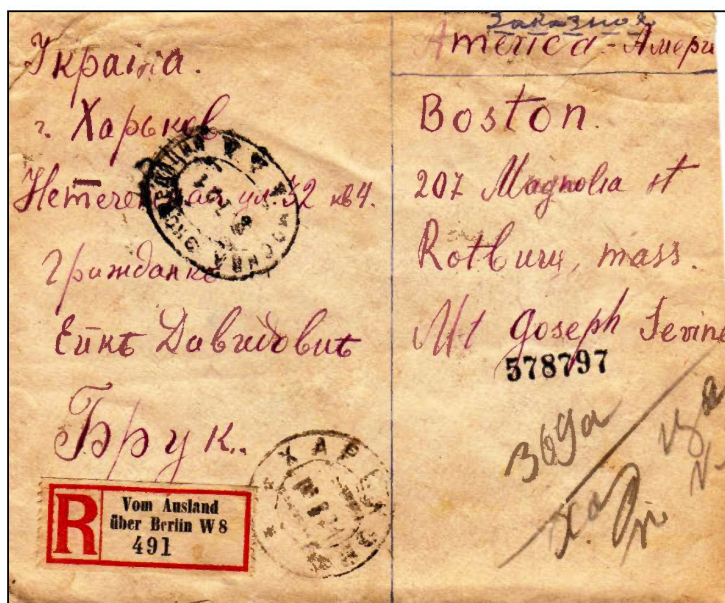 Україна.
г. Харьков
Нетеченская ул. 32 кв 4.
Гражданкѣ
Ейнѣ Давидовнѣ
Брук.
R
Vom Ausland
über Berlin W 8
491
ХАРЬКОВ
МОСКВА
Заказное
America - Амери
Boston.
207 Magnolia st
Rotbury, mass.
Mt Joseph Levine
578797
369а